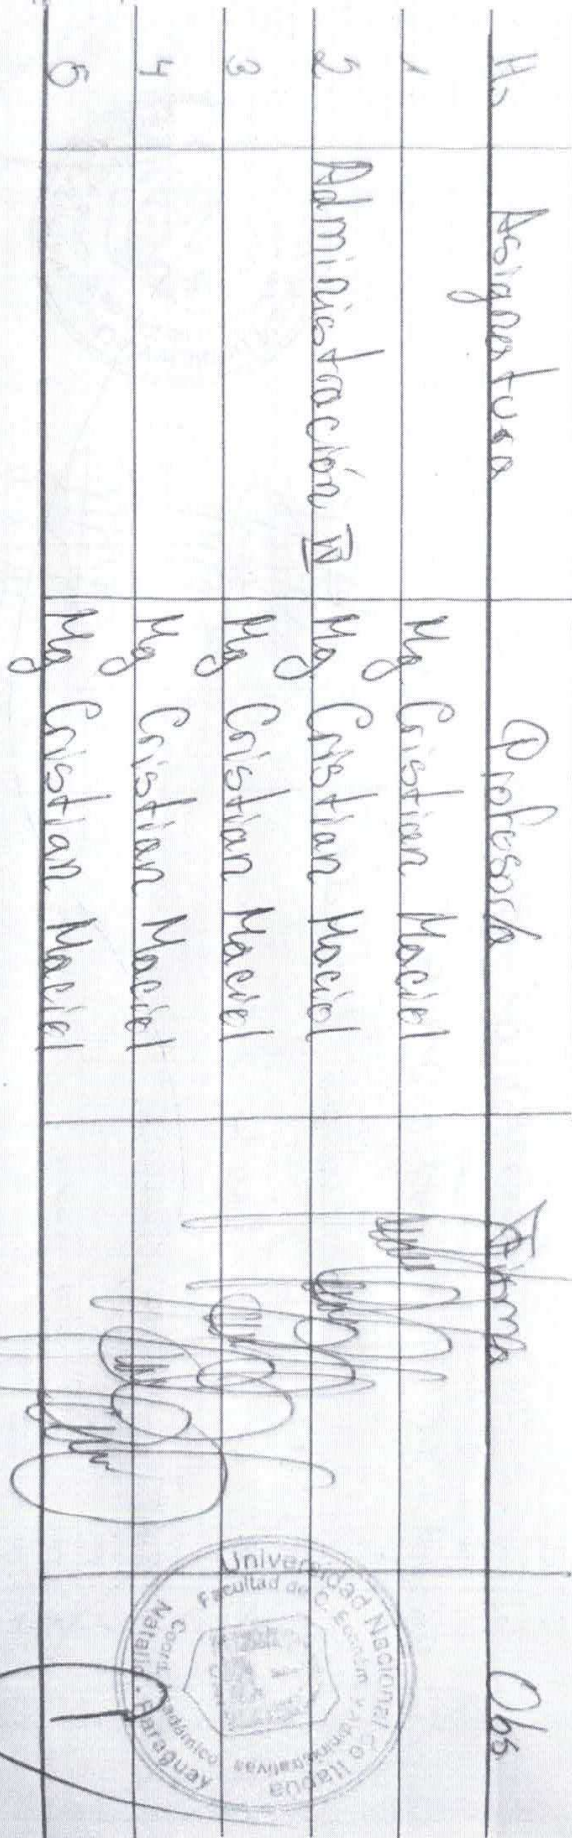 Hs Asignatura Profesor/a Firma Obs.
1 Mg Cristian Maciel
2 Administración IV Mg Cristian Maciel
3 Mg Cristian Maciel
4 Mg Cristian Maciel
5 Mg Cristian Maciel
Universidad Nacional de Itapúa
Facultad de C. Económ. y Administrativas
Coord. Académico
Natalio - Paraguay